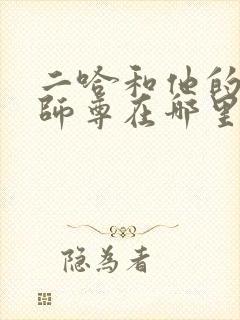 二哈和他的
師尊在哪里
隐為者